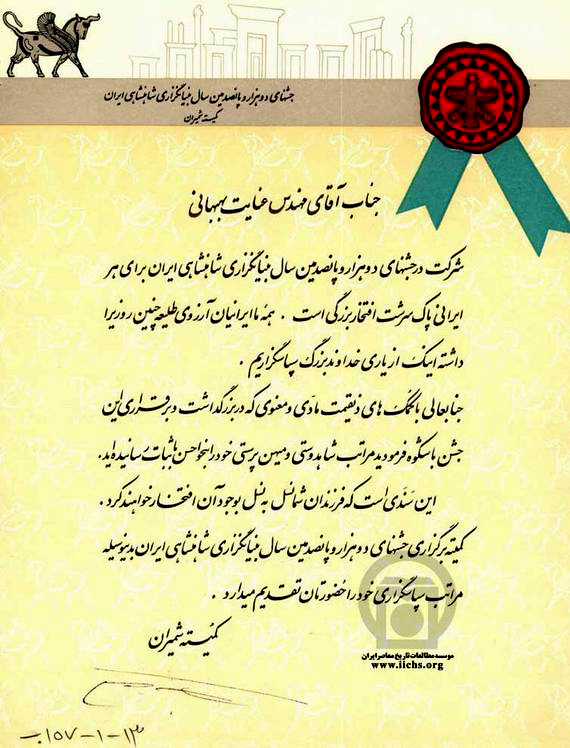 جشنهای دوهزار و پانصدمین سال بنیانگزاری شاهنشاهی ایران
کمیته شمیران
جناب آقای مهندس عنایت بهبهانی
شرکت در جشنهای دوهزار و پانصدمین سال بنیانگزاری شاهنشاهی ایران برای هر
ایرانی پاک سرشت افتخار بزرگی است . همه ما ایرانیان آرزوی طلیعه چنین روزی را
داشته اینک از یاری خداوند بزرگ سپاسگزاریم .
جنابعالی با کمک های ذیقیمت مادی و معنوی که در بزرگداشت و برقراری این
جشن باشکوه فرمودید مراتب شاهدوستی و میهن پرستی خود را بنحو احسن باثبات رسانیده‌اید.
این سندی است که فرزندان شما نسل به نسل بوجود آن افتخار خواهند کرد .
کمیته برگزاری جشنهای دوهزار و پانصدمین سال بنیانگزاری شاهنشاهی ایران بدینوسیله
مراتب سپاسگزاری خود را حضورتان تقدیم میدارد .
کمیته شمیران
موسسه مطالعات تاریخ معاصر ایران
www.iichs.org
۱۵۷-۱-۱۳